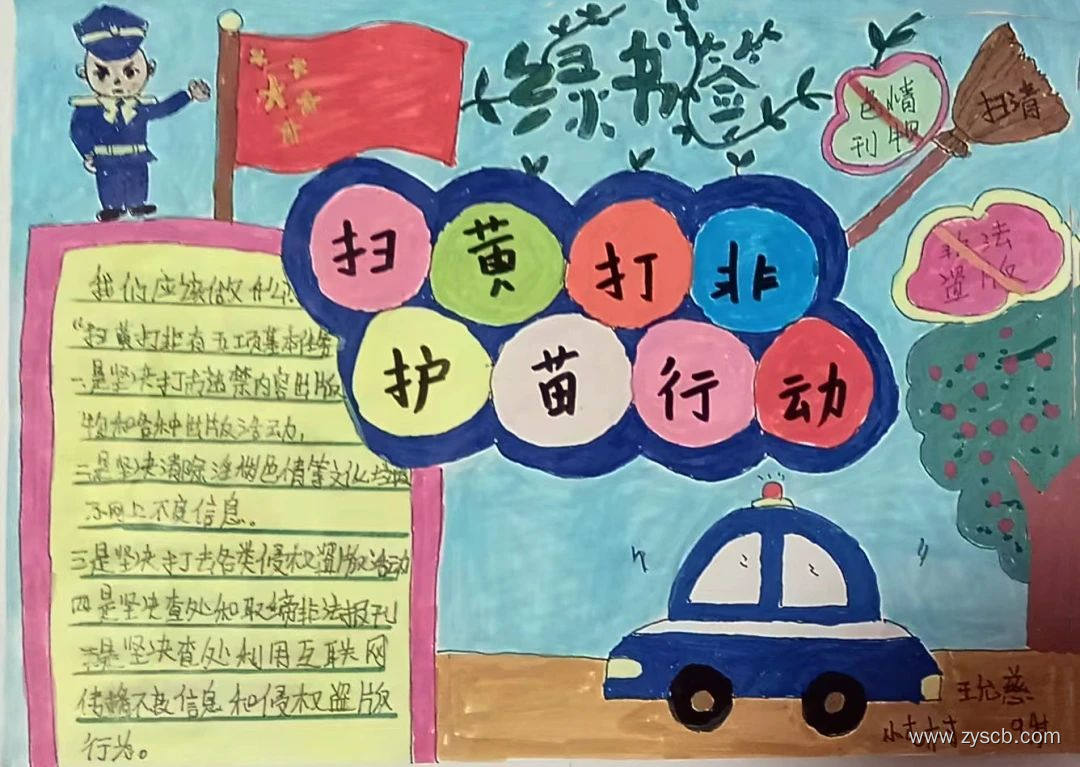 绿书签
色情
刊物
扫清
扫黄打非
护苗行动
非法
盗版
我们应该做什么?
“扫黄打非有五项基本任务
一是坚决打击违禁内容出版
物和各种出版活动,
二是坚决清除淫秽色情等文化垃圾
不良信息。
三是坚决打击各类侵权盗版活动
四是坚决查处和取缔非法报刊
是坚决查处利用互联网
传播不良信息和侵权盗版
行为。
9岁
www.zyscb.com